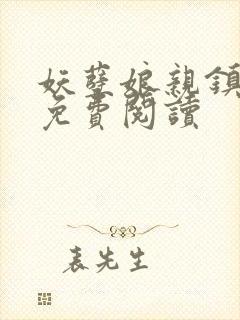 妖孽娘親鎮
免費閱讀
表先生